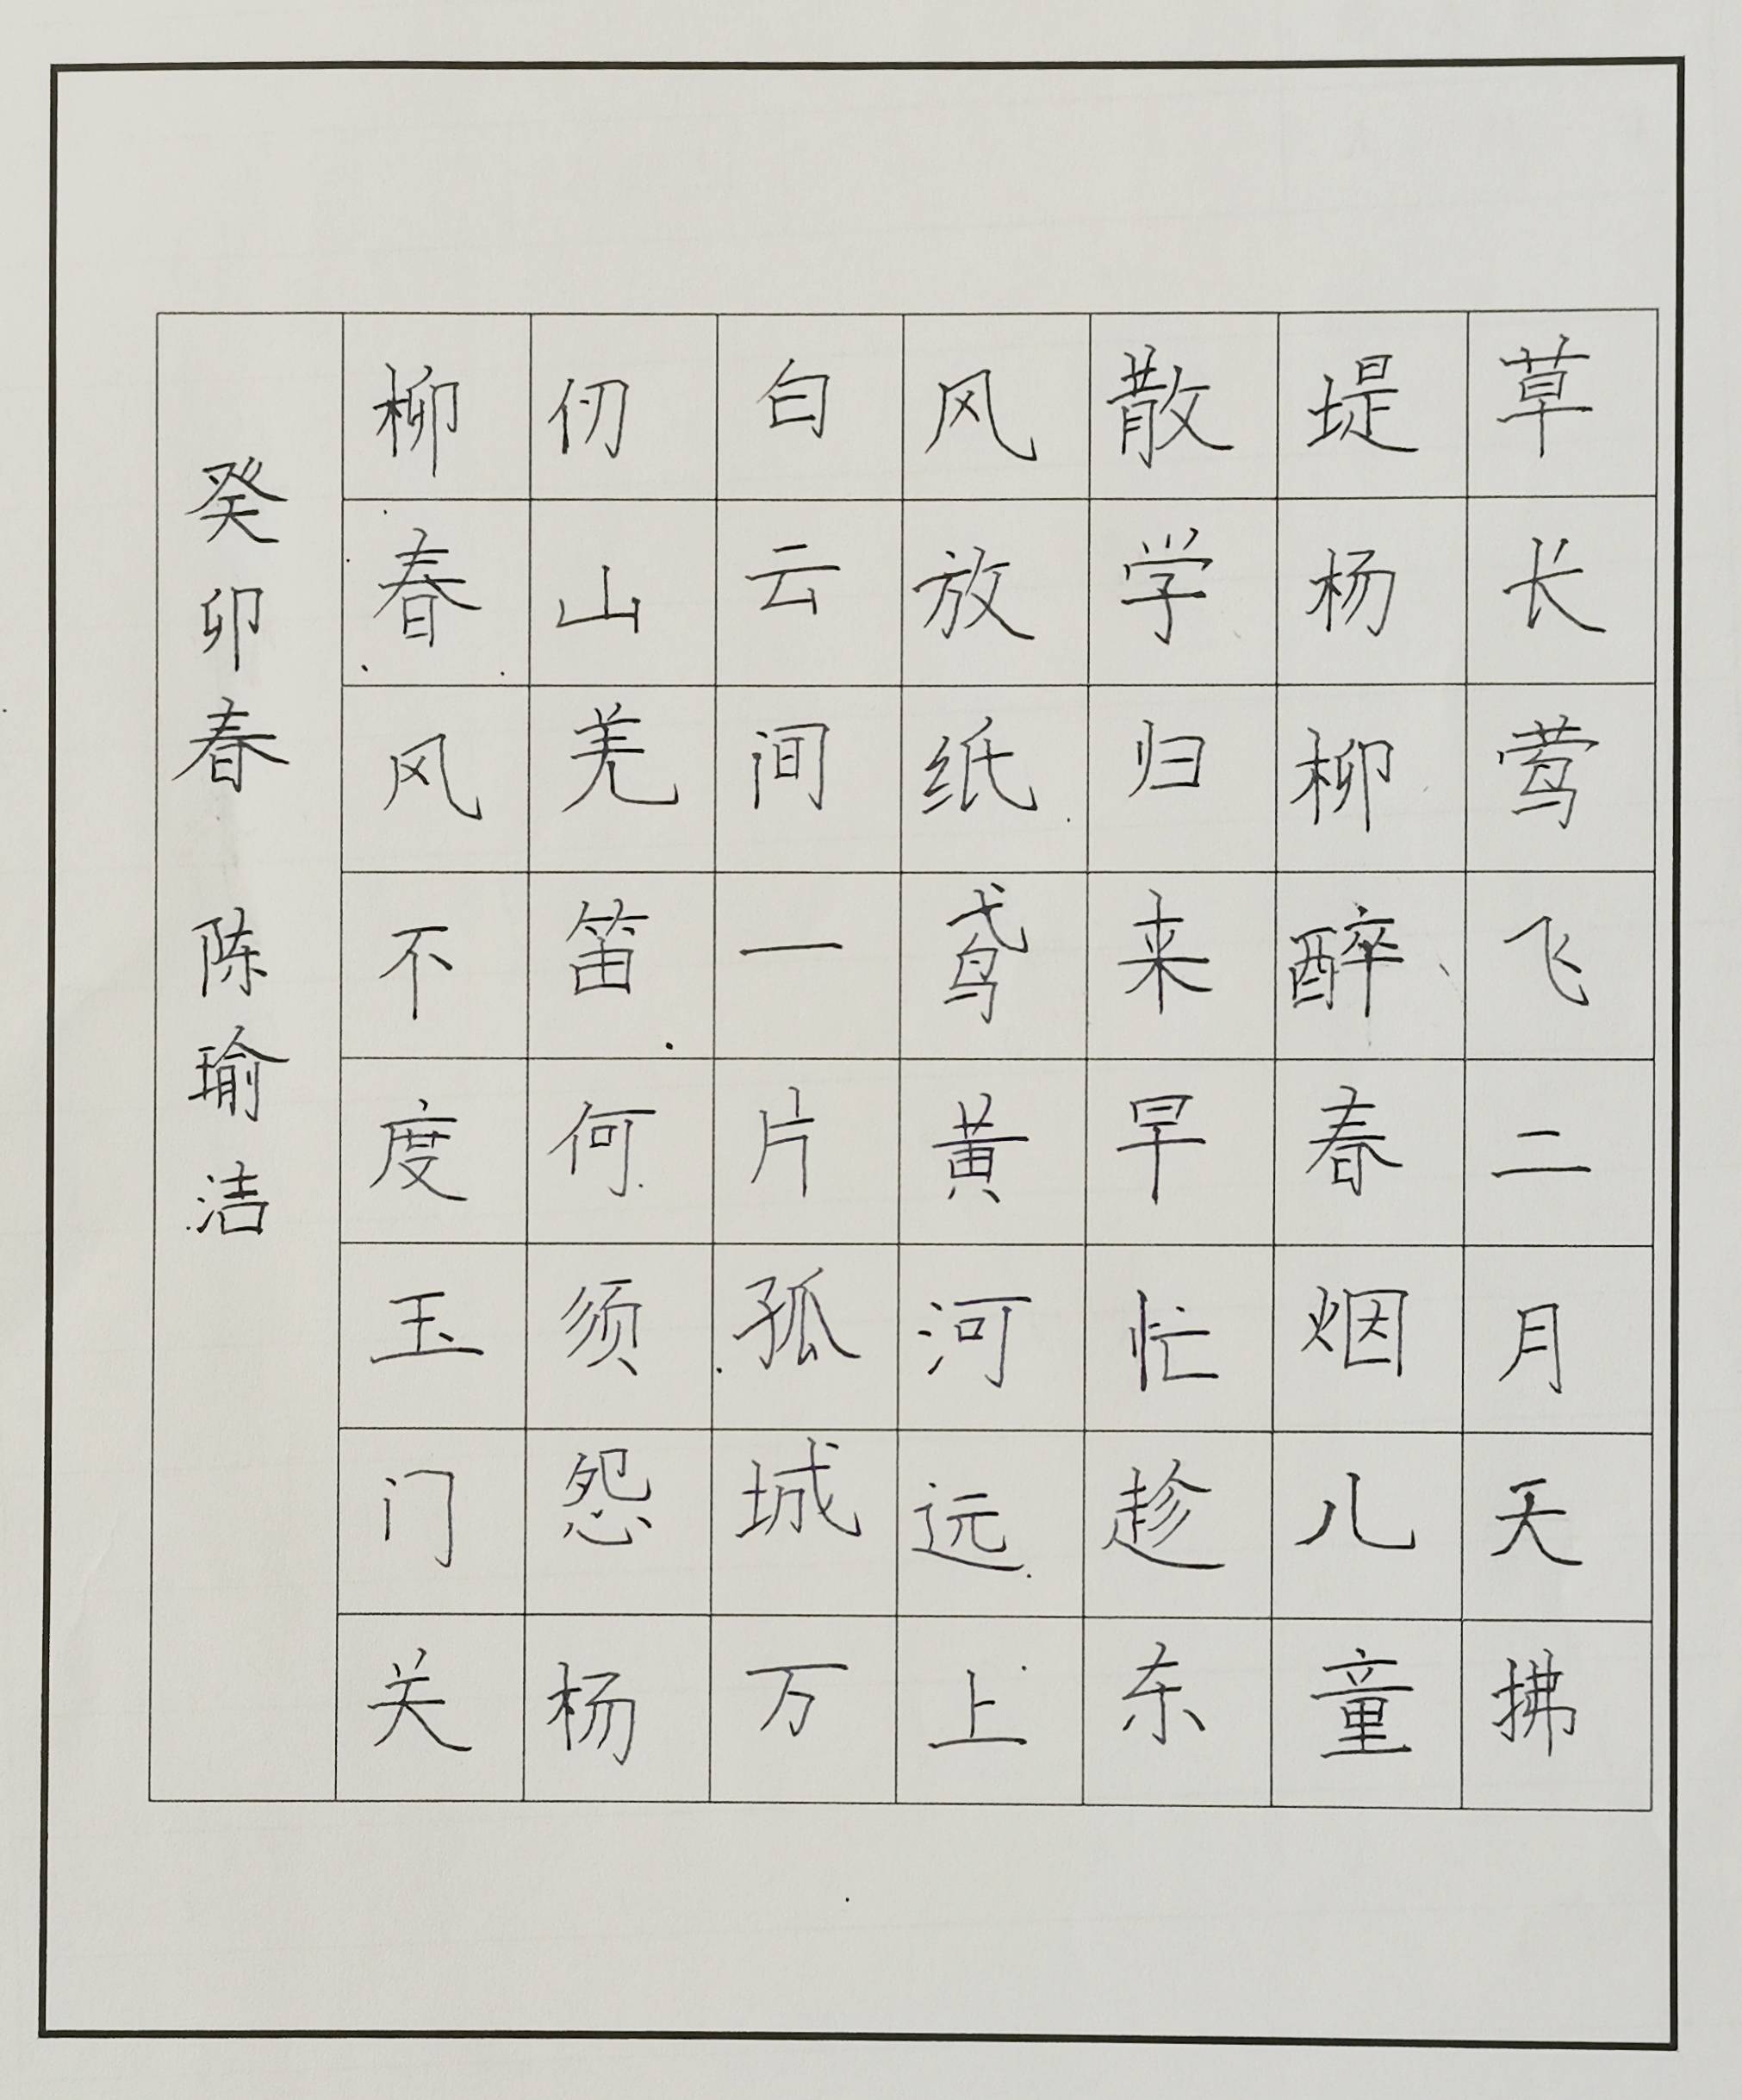 草长莺飞二月天拂
堤杨柳醉春烟儿童
散学归来早忙趁东
风放纸鸢黄河远上
白云间一片孤城万
仞山羌笛何须怨杨
柳春风不度玉门关
癸卯春 陈瑜洁